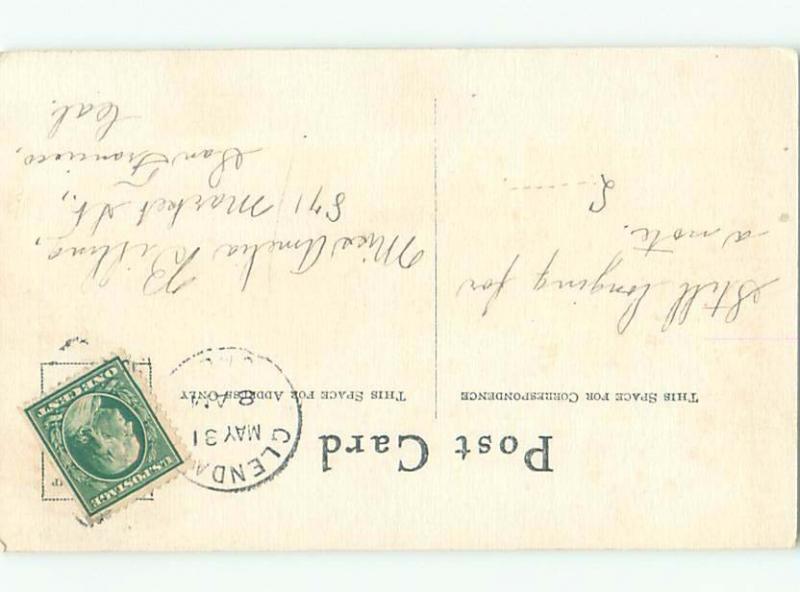 Post Card
THIS SPACE FOR CORRESPONDENCE
THIS SPACE FOR ADDRESS ONLY
GLENDA
MAY 31
8 AM
U.S. POSTAGE
ONE CENT
Still longing for
a note.
L......
Miss Amelia
871 Market St.,
San Francisco,
Cal.